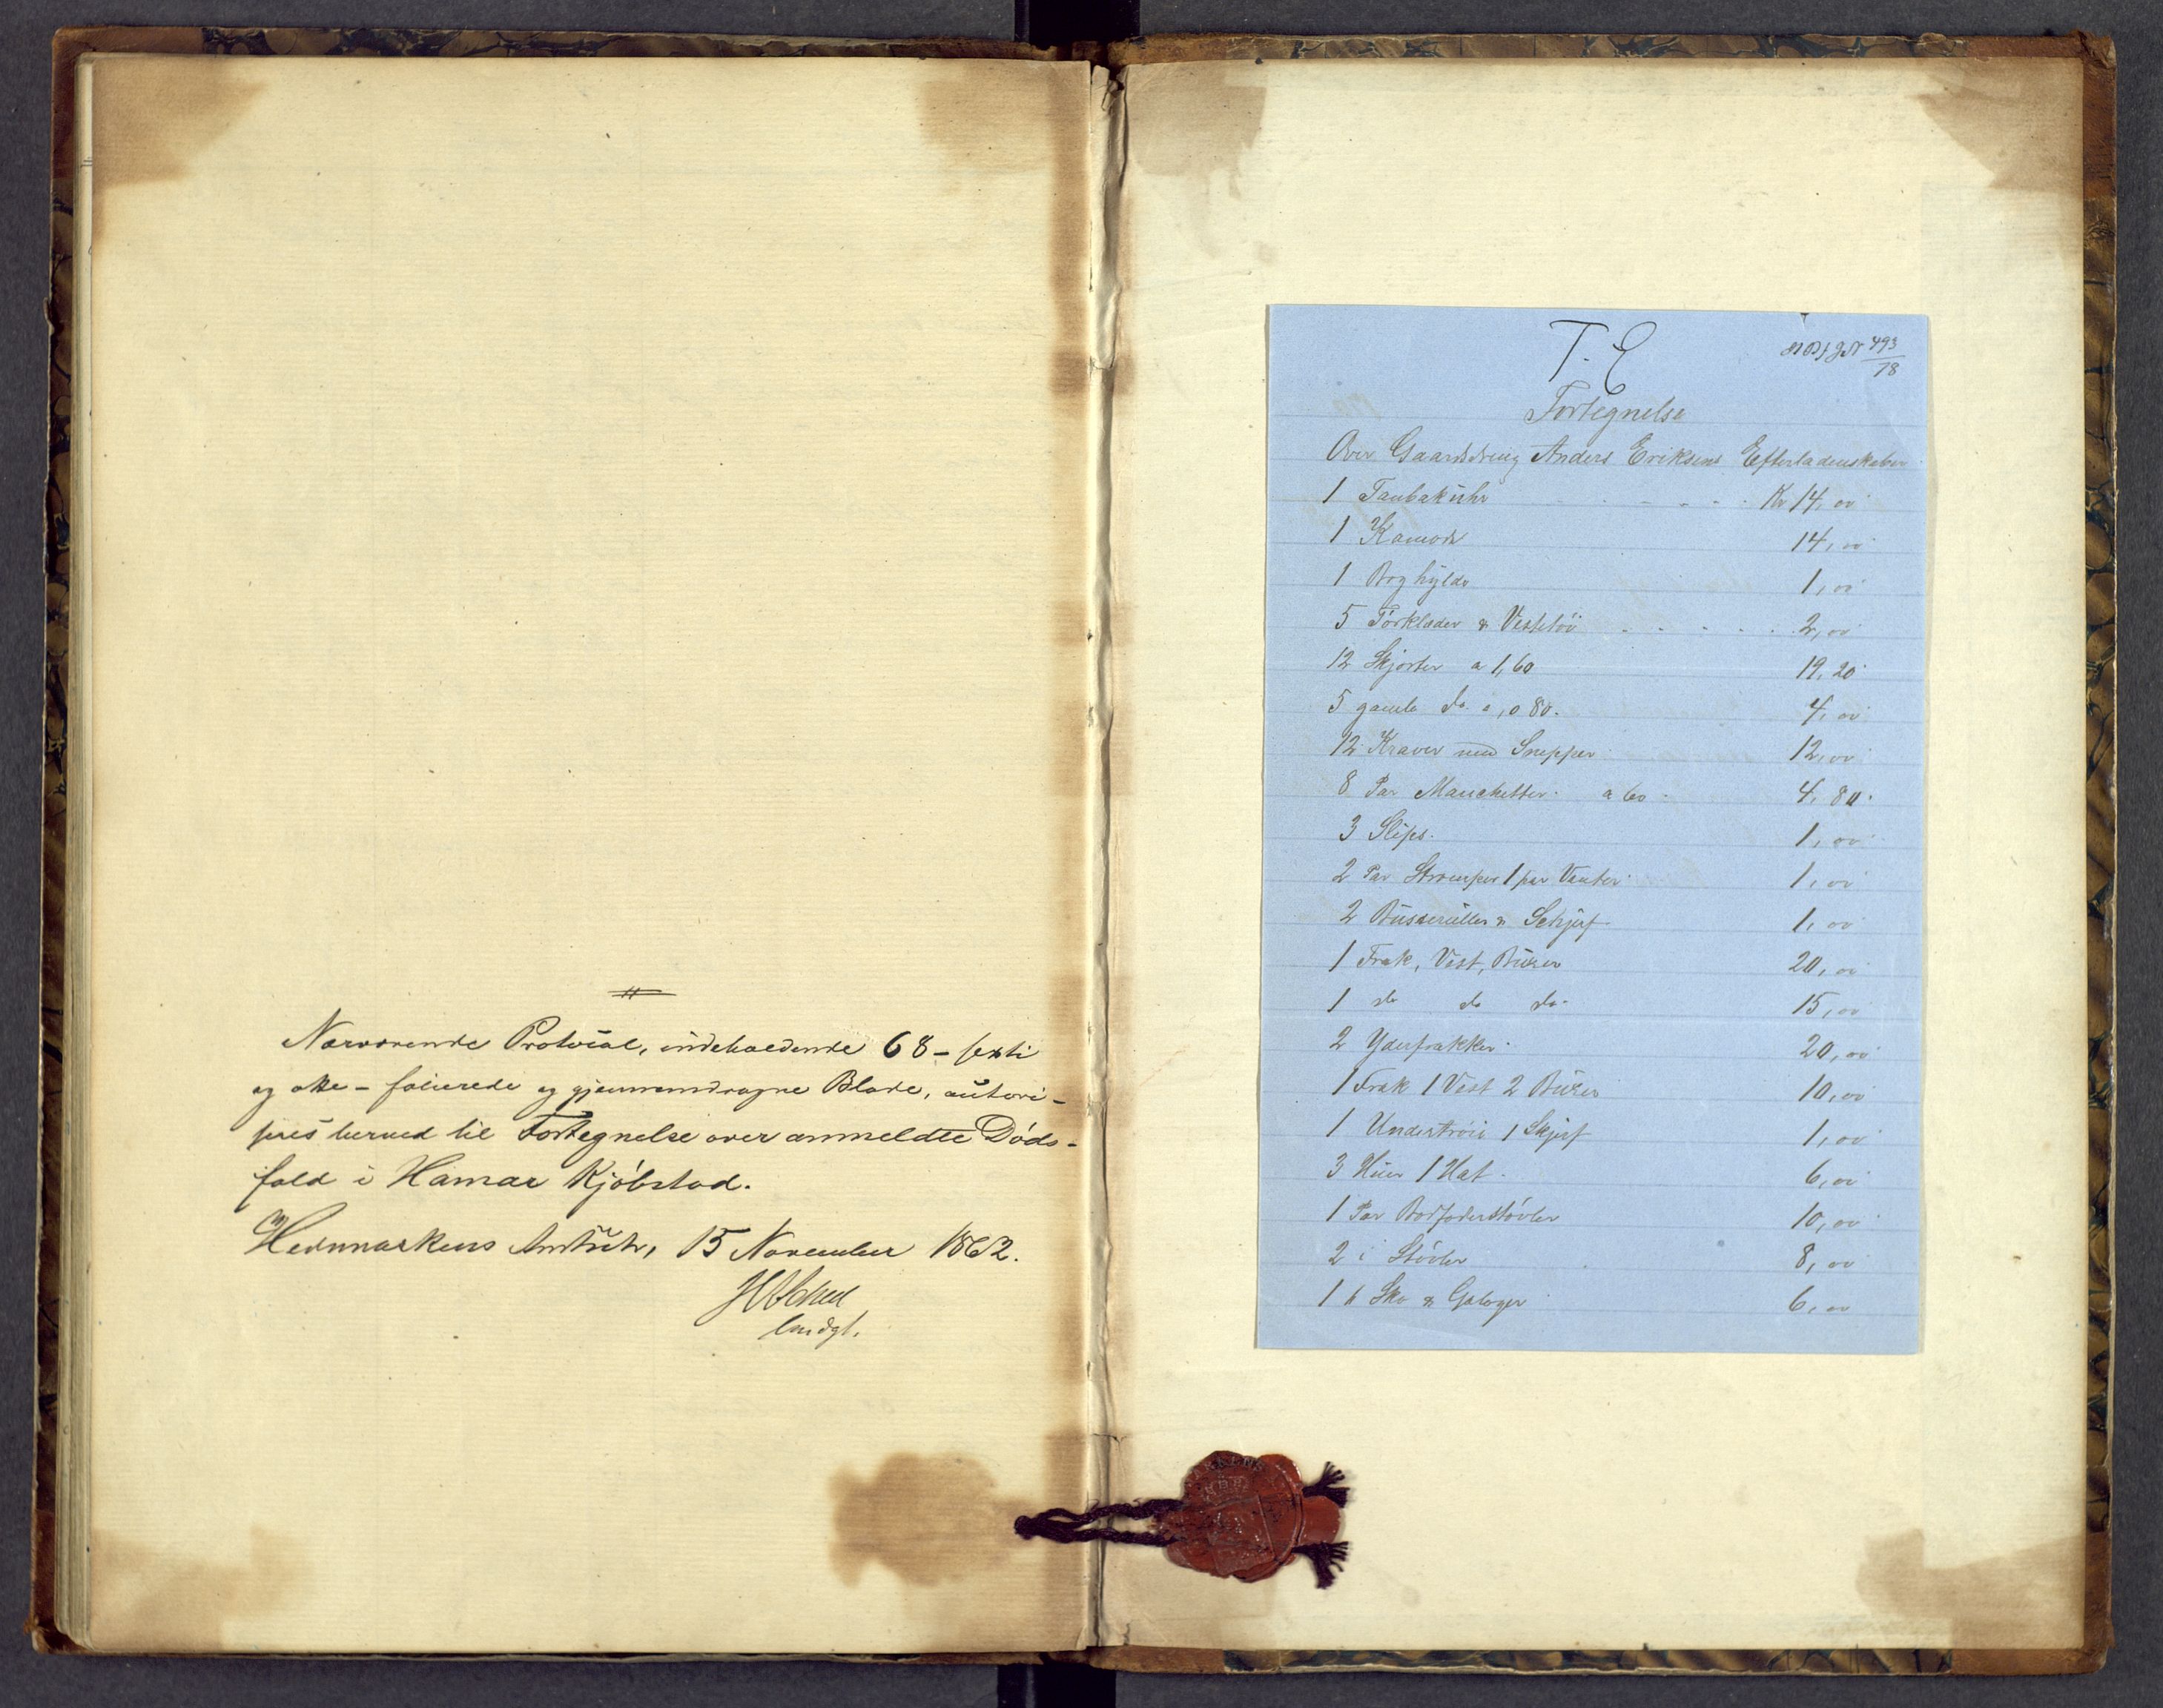 Nærværende Protocol, indeholdende 68 - sexti
og otte - folierede og gjennemdragne Blade, autori-
seres herved til Fortegnelse over anmeldte Døds-
fald i Hamar Kjøbstad.
Hedemarkens Amtsctr, 15 November 1862.
const.
T. E
493
78
Fortegnelse
Over Gaardsdreng Anders Eriksens Efterladenskaber
1 Tanbakuhr Kr 14,00
1 Kamode 14,00
1 Boghylde 1,00
5 Törklæder & Vestetöi 2,00
12 Skjorter a 1,60 19,20
5 gamle do. a ,080. 4,00
12 Kraver med Snepper 12,00
8 Par Manchetter a 60 4,80
3 Slips. 1,00
2 Par Strømper 1 par Vanter 1,00
2 Busseruller & Schjerf 1,00
1 Frak, Vest, Buxer 20,00
1 do do do. 15,00
2 Yderfrakker 20,00
1 Frak 1 Vest 2 Buxer 10,00
1 Undertröie 1 Skjerf 1,00
3 Huer 1 Hat 6,00
1 Par Bodfoderstövler 10,00
2 Stövler 8,00
1 Sko & Galoger 6,00